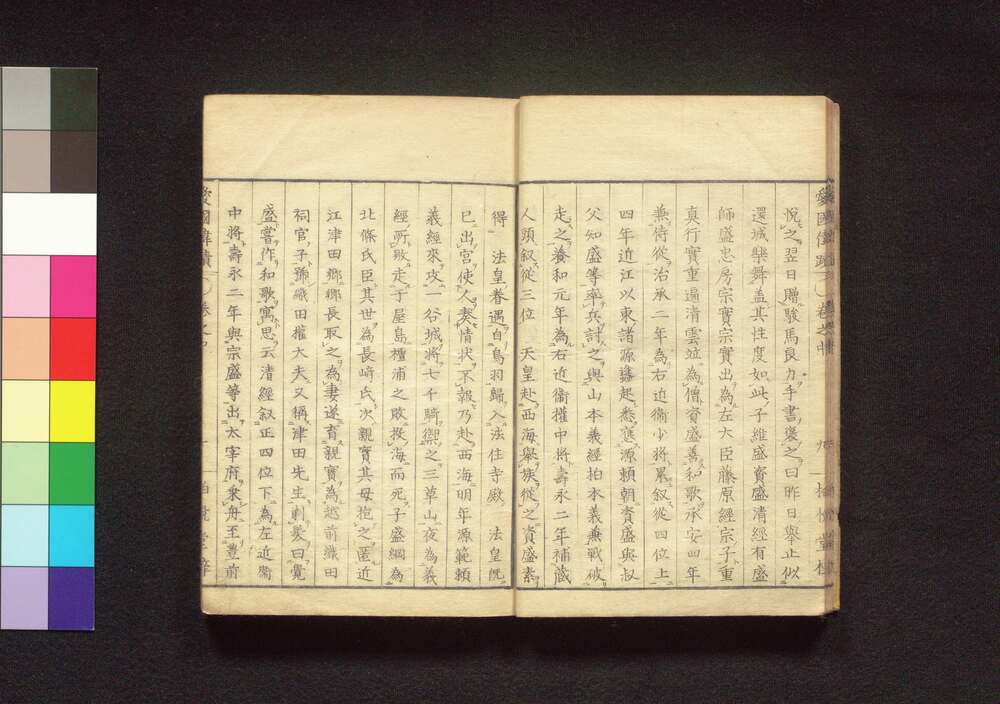 悅之翌日贈駿馬良刀手書褒之曰昨日擧止似
還城樂舞盖其性度如此子維盛資盛清經有盛
師盛忠房宗實宗實出為左大臣藤原經宗子重
真行實重遍清雲竝為僧資盛善和歌承安四年
兼侍從治承二年為右近衞少將累叙從四位上
四年近江以東諸源蠭起悉應源賴朝資盛與叔
父知盛等率兵討之與山本義經拍本義兼戰破
走之養和元年為右近衞權中將壽永二年補藏
人頭叙從三位 天皇赴西海擧族從之資盛素
得 法皇眷遇自鳥羽歸入法住寺殿 法皇既
已出宮使人奏情狀不報乃赴西海明年源範賴
義經來攻一谷城將七千騎禦之三草山夜為義
經所敗走于屋島檀浦之敗投海而死子盛綱為
北條氏臣其世為長﨑氏次親實其母抱之匿近
江津田鄕鄕長取之為妻遂育親實為越前織田
祠官子孫織田權大夫又稱津田先生剃髮曰覺
盛嘗作和歌寓思云清經叙正四位下為左近衞
中將壽永二年與宗盛等出太宰府乘舟至豊前